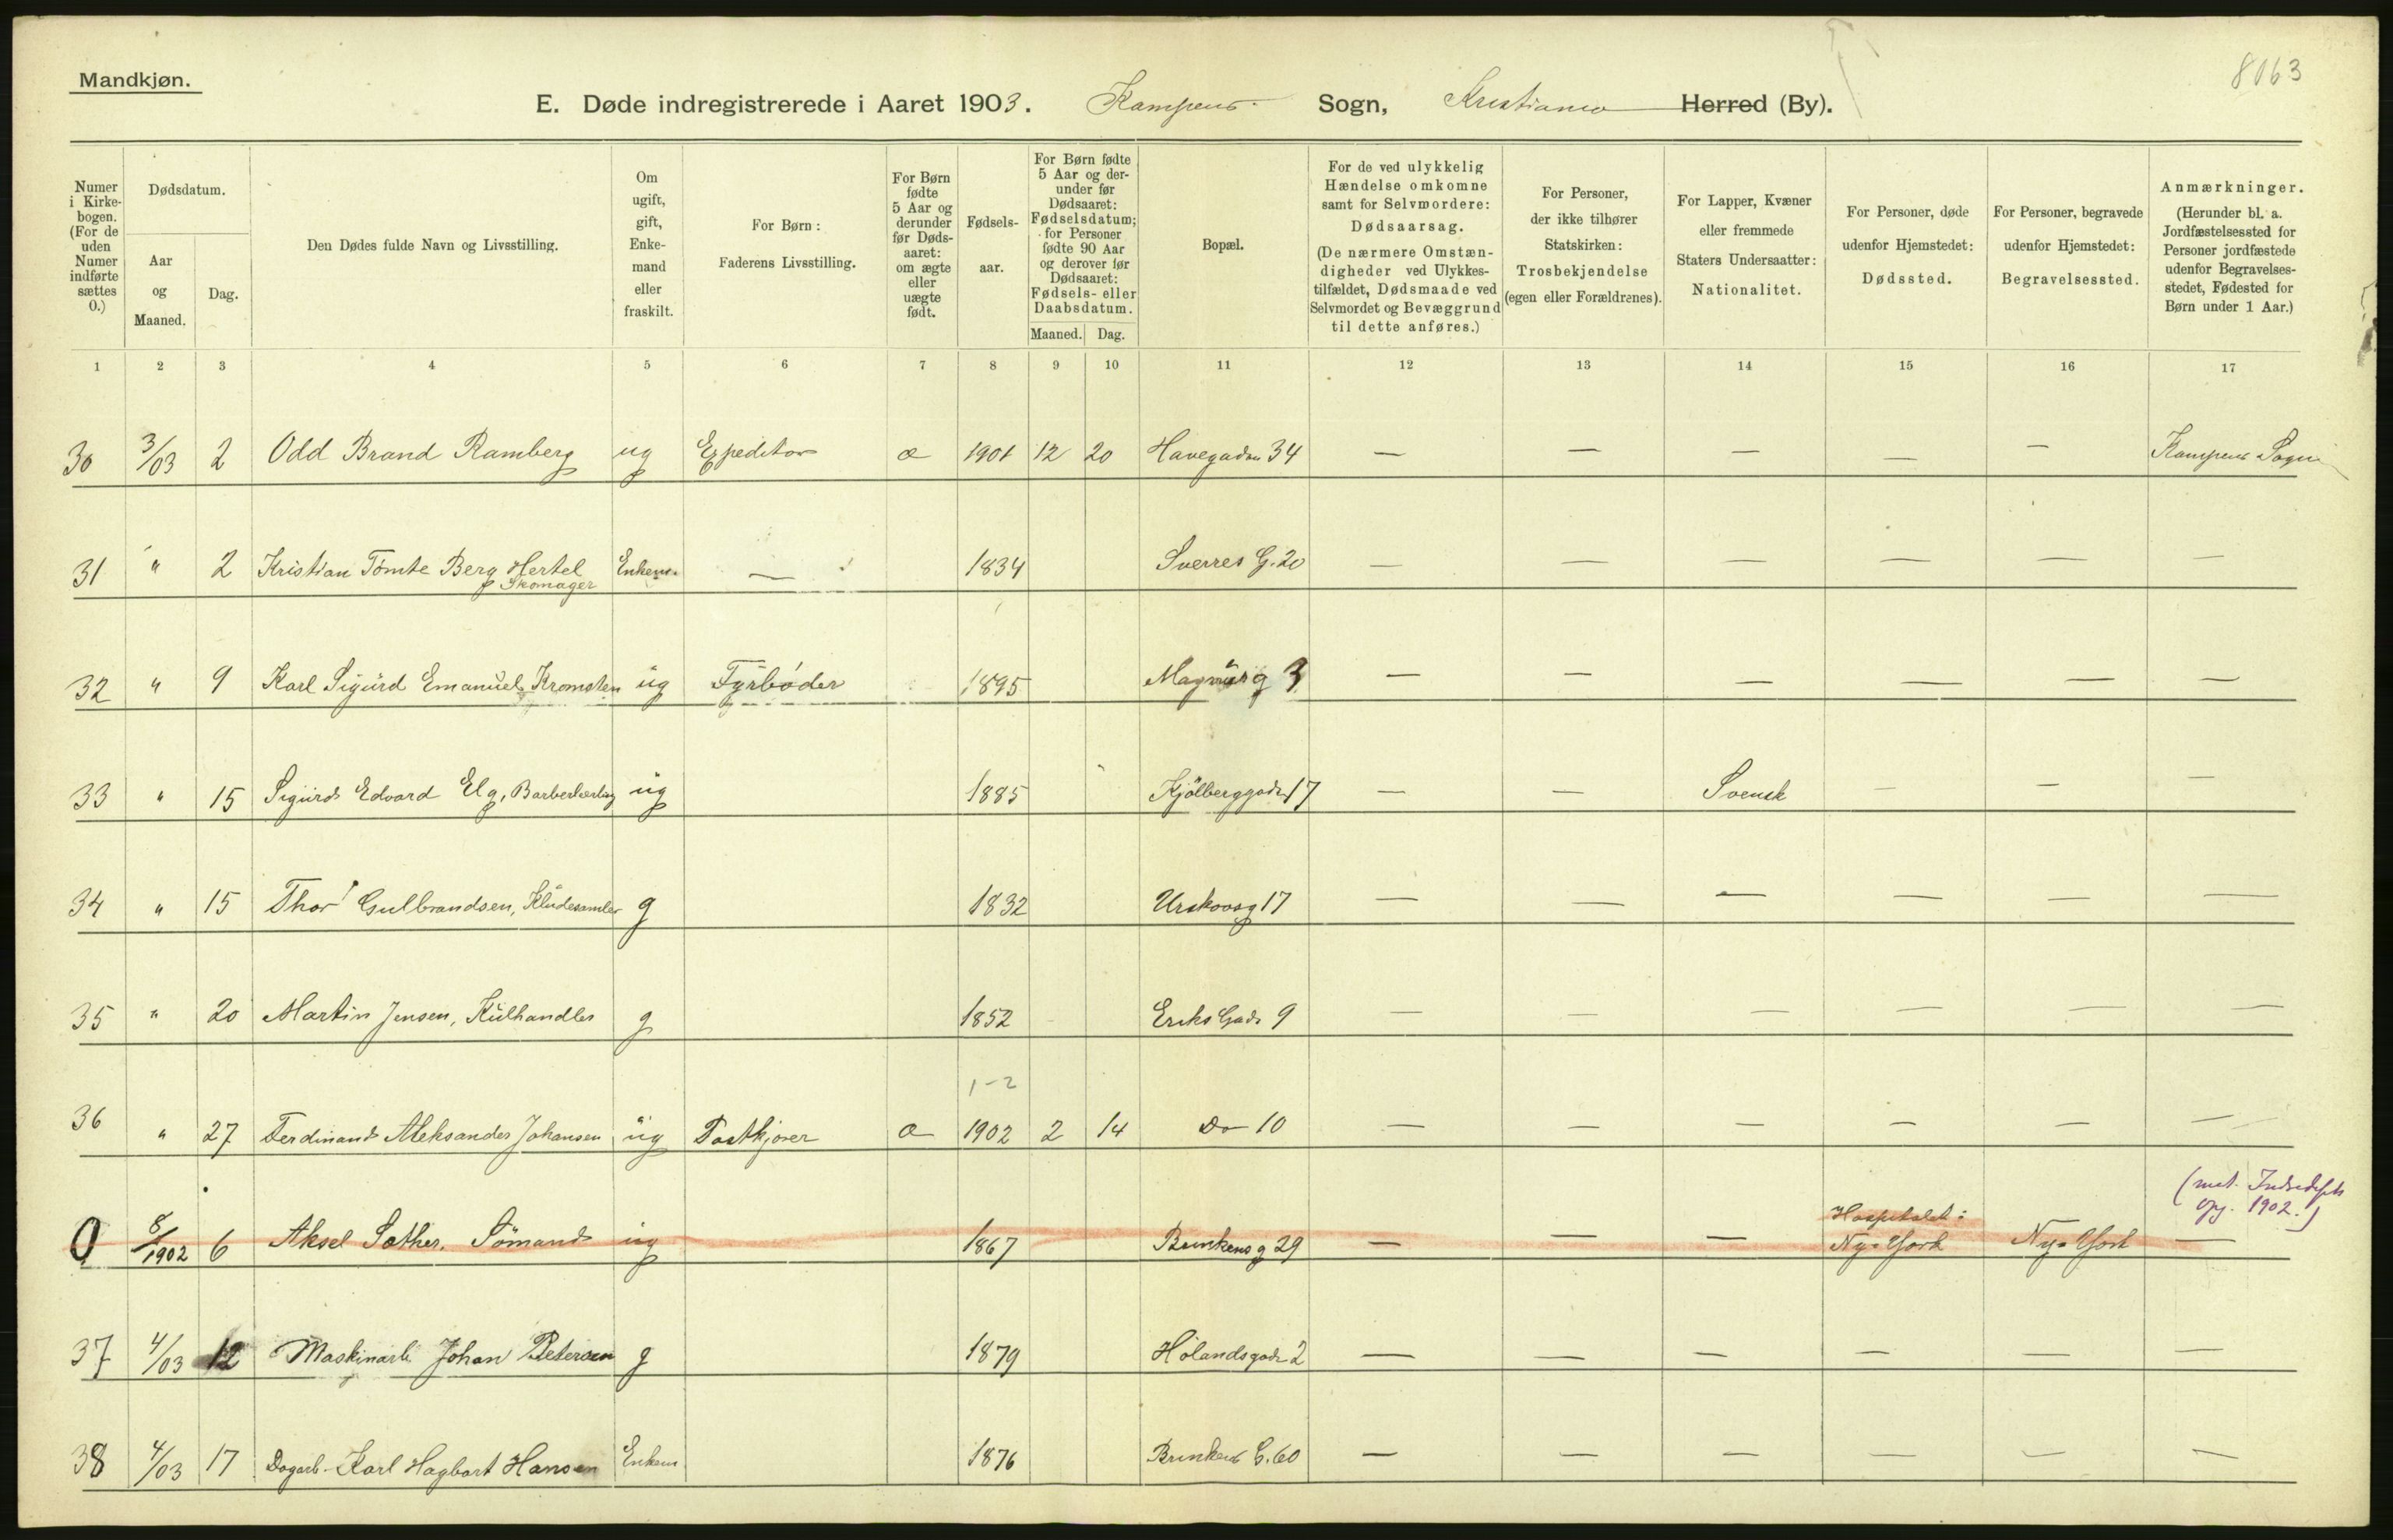 Mandkjøn.
8063
E. Døde indregistrerede i Aaret 1903. Kampens Sogn, Kristiania Herred (By).
Numer i Kirkebogen. (For de uden Numer indførte sættes 0.)
Dødsdatum.
Aar og Maaned.
Dag.
Den Dødes fulde Navn og Livsstilling.
Om ugift, gift, Enkemand eller fraskilt.
For Børn: Faderens Livsstilling.
For Børn fødte 5 Aar og derunder før Dødsaaret: om ægte eller uægte født.
Fødselsaar.
For Børn fødte 5 Aar og derunder før Dødsaaret: Fødselsdatum; for Personer fødte 90 Aar og derover før Dødsaaret: Fødsels- eller Daabsdatum.
Maaned. Dag.
Bopæl.
For de ved ulykkelig Hændelse omkomne samt for Selvmordere: Dødsaarsag. (De nærmere Omstændigheder ved Ulykkestilfældet, Dødsmaade ved Selvmordet og Bevæggrund til dette anføres.)
For Personer, der ikke tilhører Statskirken: Trosbekjendelse (egen eller Forældrenes).
For Lapper, Kvæner eller fremmede Staters Undersaatter: Nationalitet.
For Personer, døde udenfor Hjemstedet: Dødssted.
For Personer, begravede udenfor Hjemstedet: Begravelsessted.
Anmærkninger. (Herunder bl. a. Jordfæstelsessted for Personer jordfæstede udenfor Begravelsesstedet, Fødested for Børn under 1 Aar.)
1 2 3 4 5 6 7 8 9 10 11 12 13 14 15 16 17
30 3/03 2 Odd Brand Ramberg ug Expeditør æ 1901 12 20 Havegaden 34 — — — — — Kampens Sogn
31 " 2 Kristian Tömte Berg Hertel Enkem. — 1834 Sverres G. 20 — — — — — —
Skomager
32 " 9 Karl Sigurd Emanuel Kromsten ug Fyrbøder 1895 Magnusg 3 — — — — — —
33 " 15 Sigurd Edvard Elg, Barberlærling ug 1885 Kjölberggade 17 — — Svensk — — —
34 " 15 Thor Gulbrandsen, Kludesamler g 1832 Urskovsg 17 — — — — — —
35 " 20 Martin Jensen, Kulhandler g 1852 Eriks Gade 9 — — — — — —
1-2
36 " 27 Ferdinand Aleksander Johansen ug Postkjører æ 1902 2 14 Do 10 — — — — — —
0 8/1902 6 Aksel Sæther. Sömand ug 1867 Brinkens g 29 — — — Hospitalet i Ny-York Ny-York —
1902.)
37 4/03 12 Maskinarb Johan Petersen g 1879 Hølandsgade 2 — — — — — —
38 4/03 17 Dagarb. Karl Hagbart Hansen Enkem 1876 Brinkens G. 60 — — — — — —